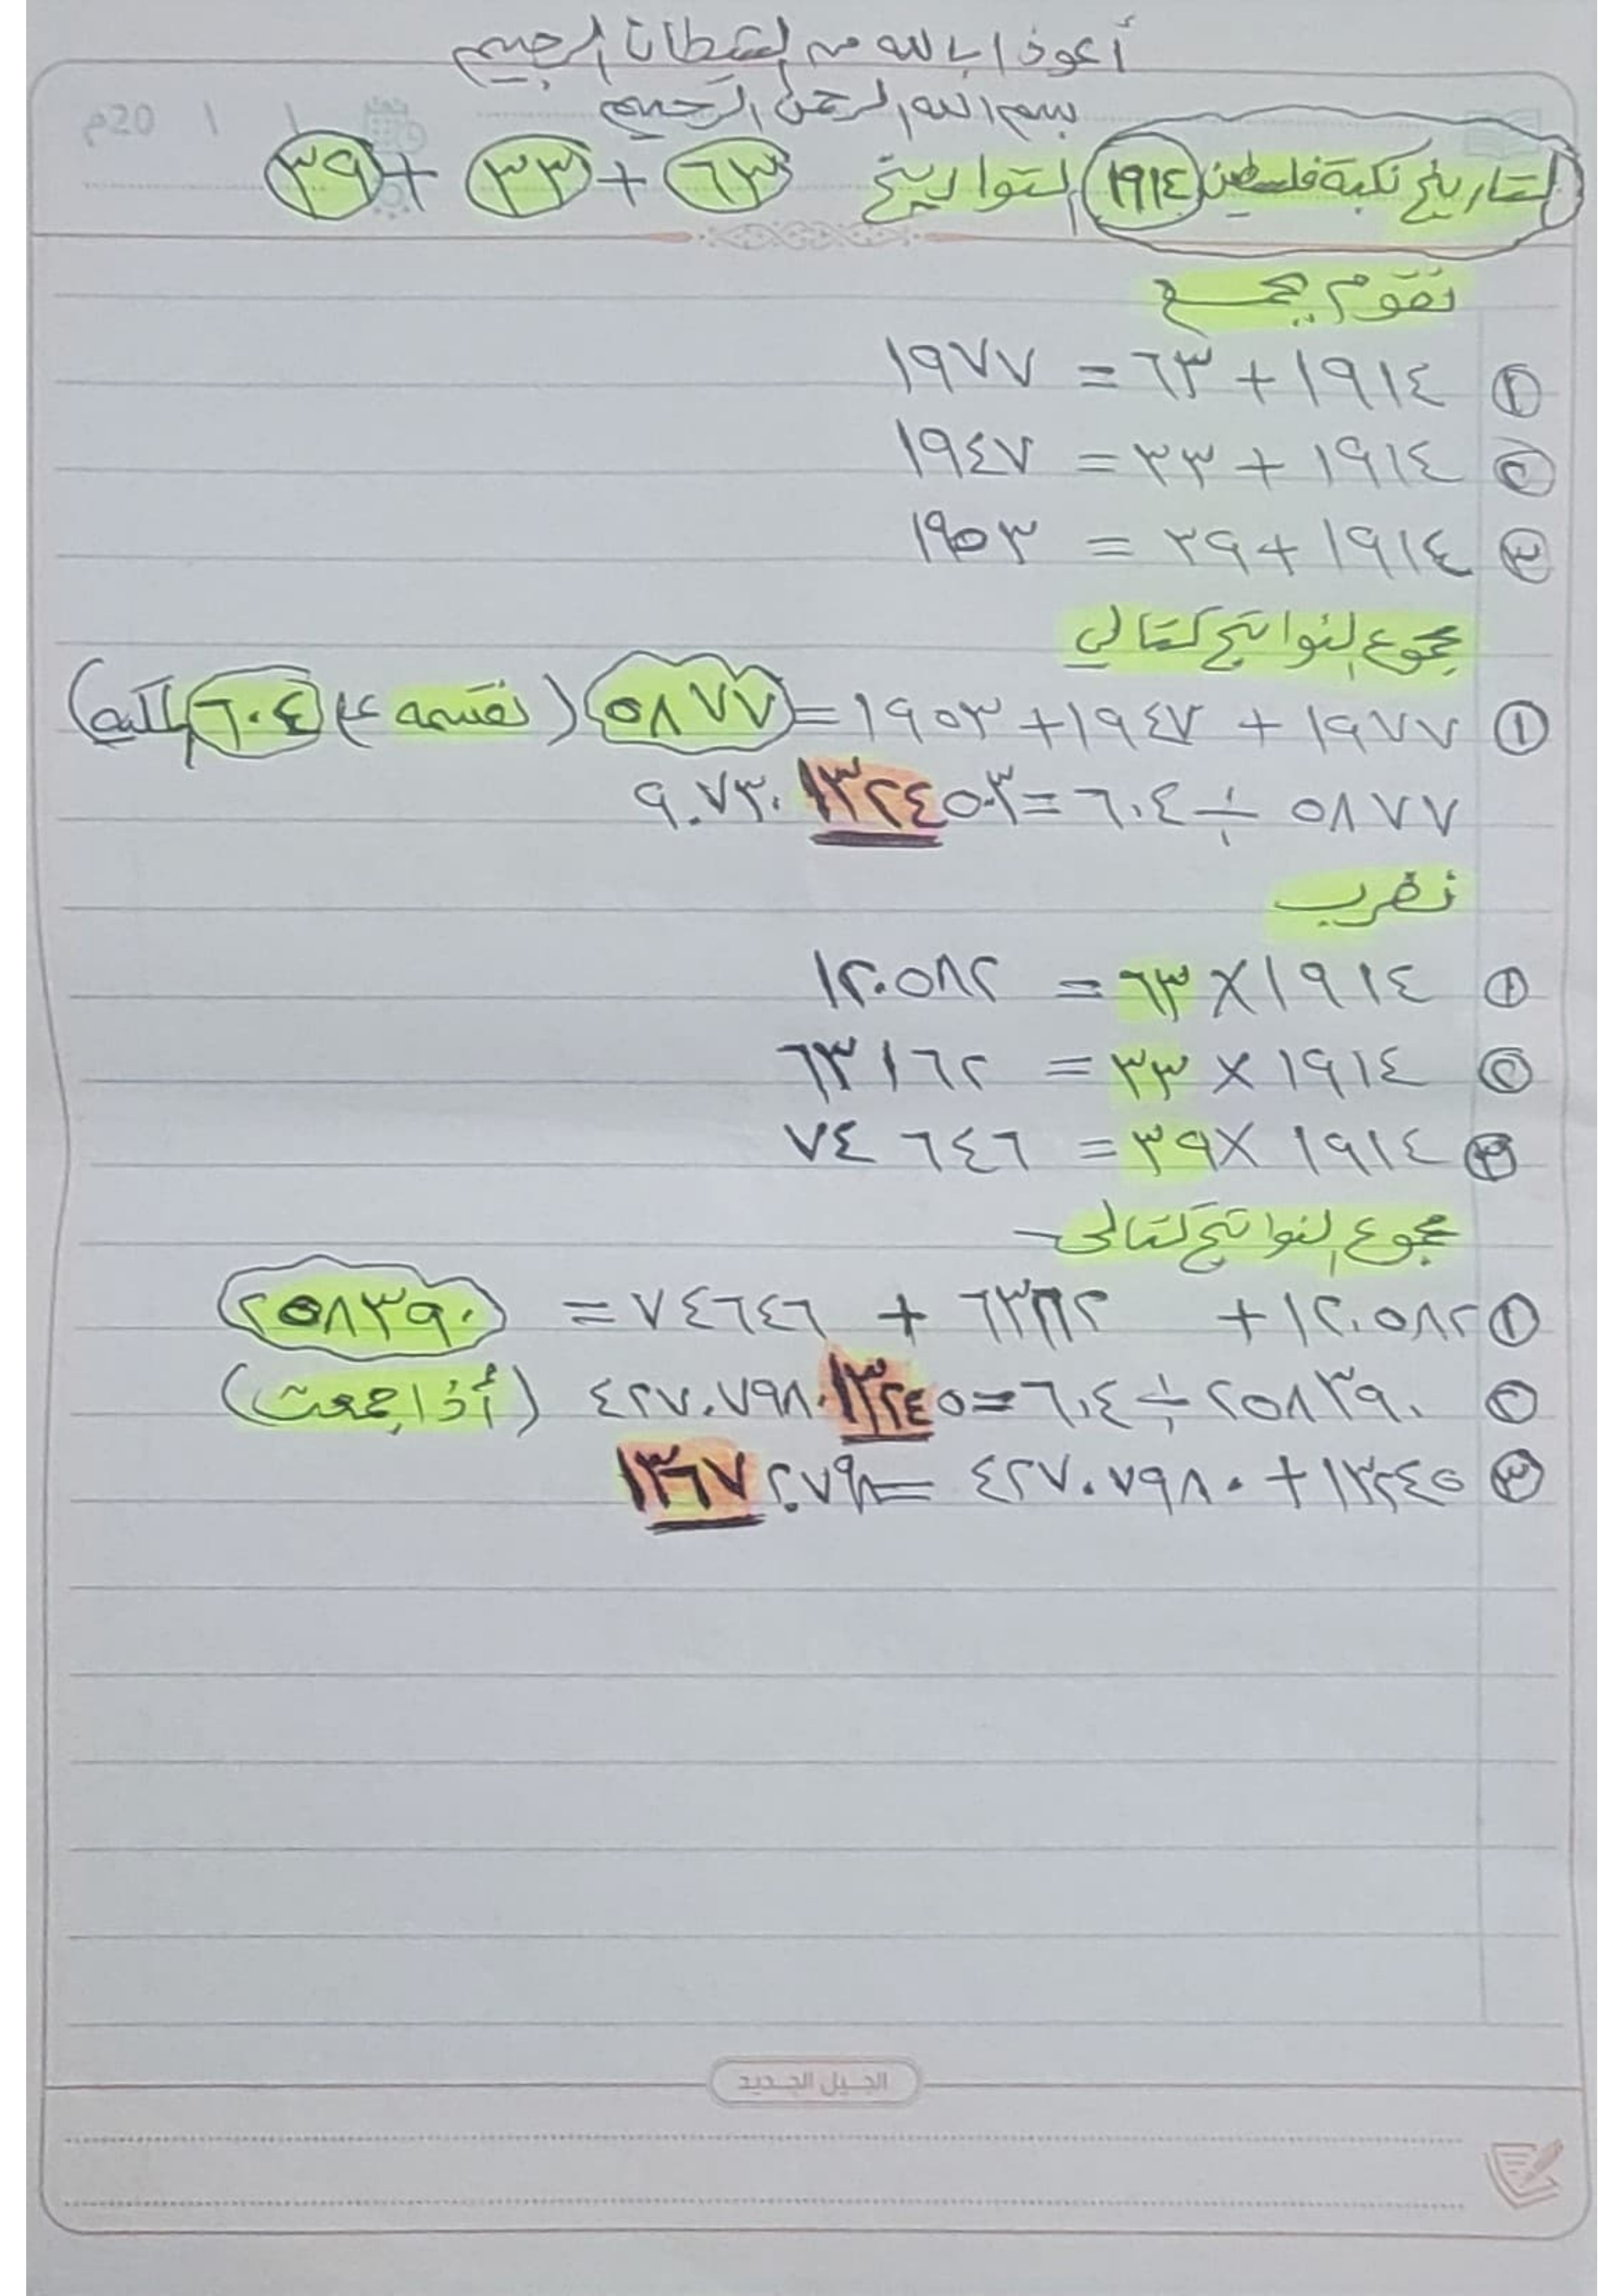 أعوذ بالله من الشيطان الرجيم
بسم الله الرحمن الرحيم
20م / /
التاريخ نكبة فلسطين ١٩١٤ التواريخ ٦٣ + ٣٣ + ٣٩
نقوم بجمع
١ ١٩١٤ + ٦٣ = ١٩٧٧
٢ ١٩١٤ + ٣٣ = ١٩٤٧
٣ ١٩١٤ + ٣٩ = ١٩٥٣
مجموع النواتج كتالي
١ ١٩٧٧ + ١٩٤٧ + ١٩٥٣ = ٥٨٧٧ (نقسمه على ٦٠٤)
٥٨٧٧ ÷ ٦٠٤ = ٩.٧٣٠١٣٢٤٥٠٣
نضرب
١ ١٩١٤ × ٦٣ = ١٢٠٥٨٢
٢ ١٩١٤ × ٣٣ = ٦٣١٦٢
٣ ١٩١٤ × ٣٩ = ٧٤٦٤٦
مجموع النواتج كتالي
١ ١٢٠٥٨٢ + ٦٣١٦٢ + ٧٤٦٤٦ = ٢٥٨٣٩٠
٢ ٢٥٨٣٩٠ ÷ ٦٠٤ = ٤٢٧.٧٩٨٠١٣٢٤٥ (أذا جمعت)
٣ ١٣٢٤٥ + ٤٢٧.٧٩٨٠ = ١٣٦٧٢.٧٩٨
الجيل الجديد